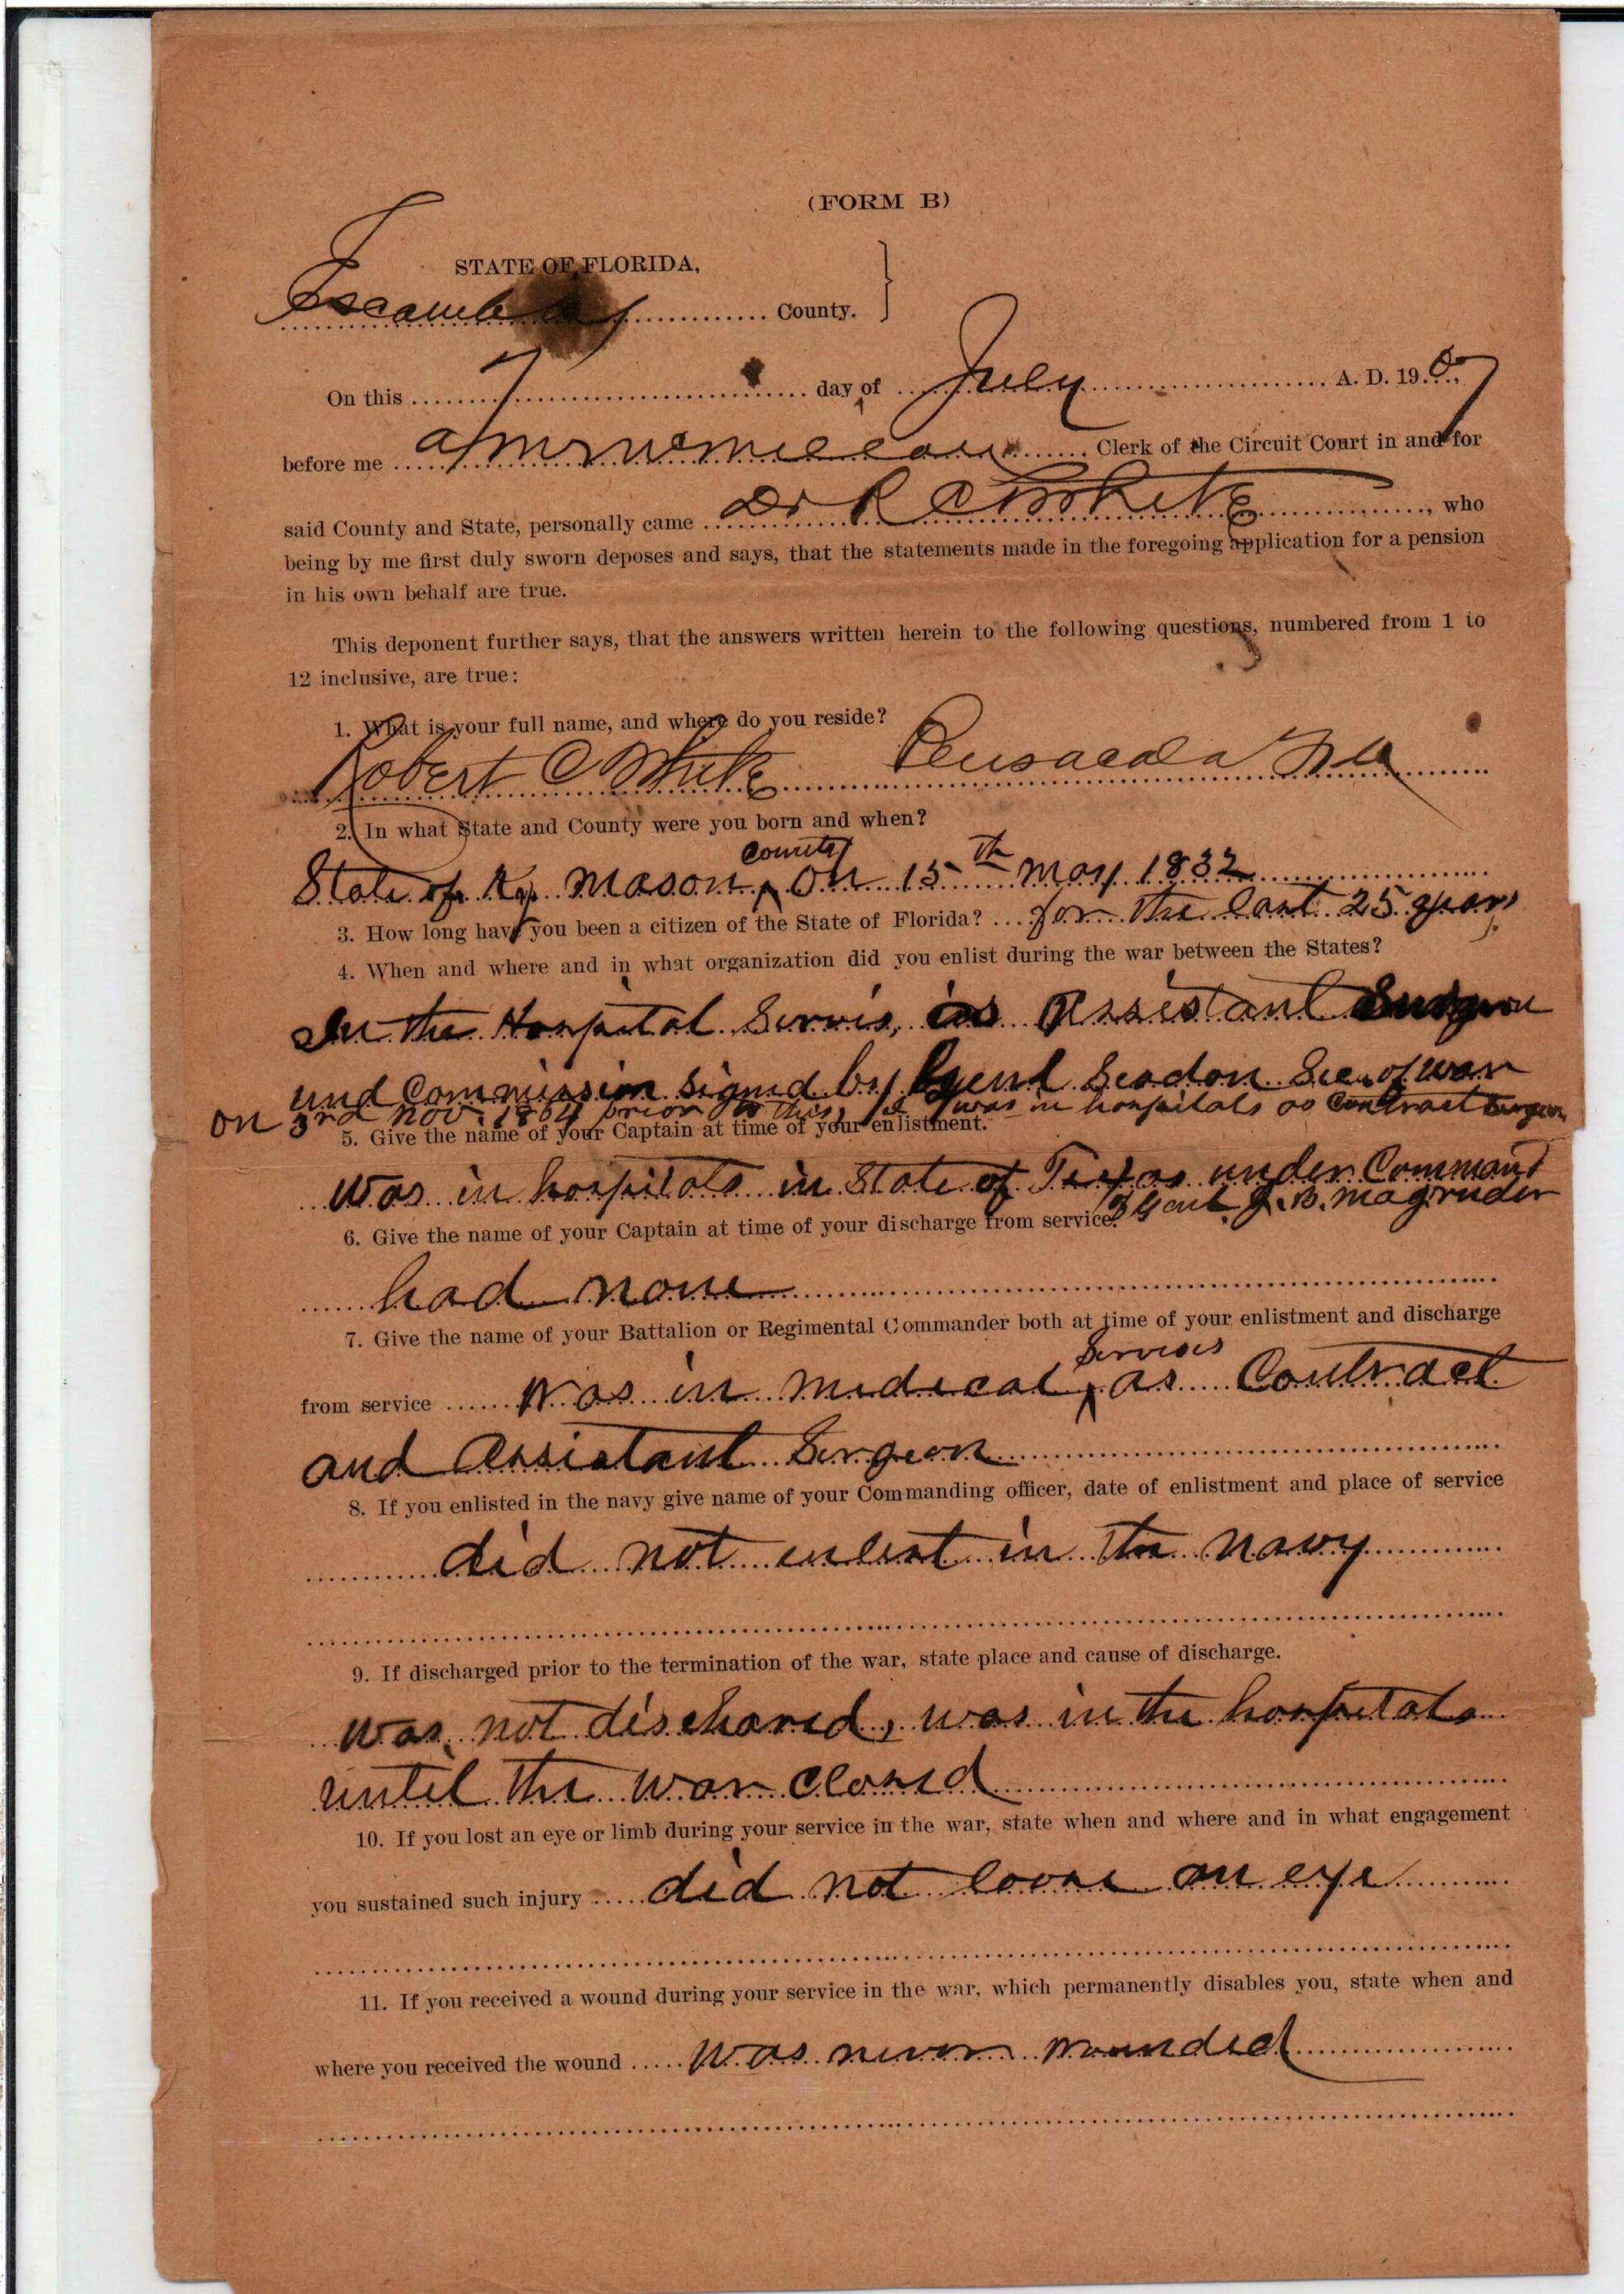 (FORM B)
STATE OF FLORIDA,
Escambia County.
On this 7 day of July A. D. 1907
before me Clerk of the Circuit Court in and for
said County and State, personally came Dr R C White, who
being by me first duly sworn deposes and says, that the statements made in the foregoing application for a pension
in his own behalf are true.
This deponent further says, that the answers written herein to the following questions, numbered from 1 to
12 inclusive, are true:
1. What is your full name, and where do you reside?
Robert C White Pensacola Fla
2. In what State and County were you born and when?
State of Ky. Mason county on 15th May 1832
3. How long have you been a citizen of the State of Florida? for the last 25 years
4. When and where and in what organization did you enlist during the war between the States?
In the Hospital Servis, as Assistant Surgeon
und Commission signed by Sec. of War
on 3rd Nov. 1864 prior to this, I was in hospitals as Contract Surgeon
5. Give the name of your Captain at time of your enlistment.
was in hospitals in State of Texas under Command
Genl. J. B. Magruder
6. Give the name of your Captain at time of your discharge from service.
had none
7. Give the name of your Battalion or Regimental Commander both at time of your enlistment and discharge
from service was in medical Servises as Contract
and Assistant Surgeon
8. If you enlisted in the navy give name of your Commanding officer, date of enlistment and place of service
did not enlist in the navy
9. If discharged prior to the termination of the war, state place and cause of discharge.
was not dischared, was in the hospitals
until the war closed
10. If you lost an eye or limb during your service in the war, state when and where and in what engagement
you sustained such injury did not loose an eye
11. If you received a wound during your service in the war, which permanently disables you, state when and
where you received the wound was never wounded